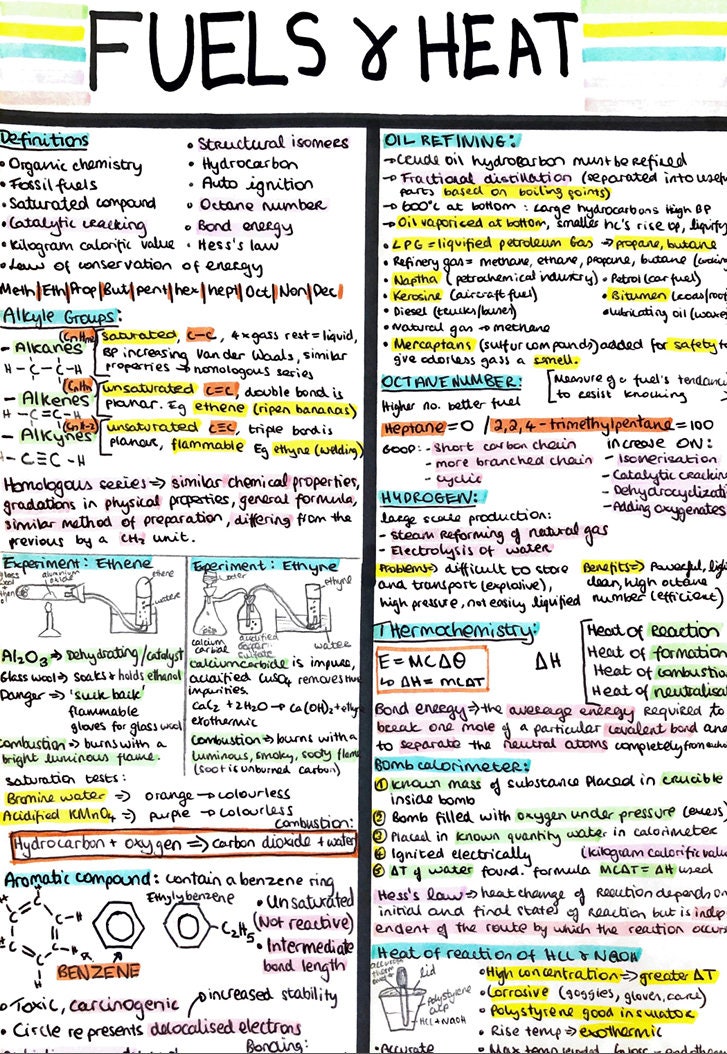 FUELS & HEAT
Definitions
• Organic chemistry
• Fossil fuels
• Saturated compound
• Catalytic cracking
• Kilogram calorific value
• Law of conservation of energy
• Structural isomers
• Hydrocarbon
• Auto ignition
• Octane number
• Bond energy
• Hess's law
Meth|Eth|Prop|But|pent|hex|hept|Oct|Non|Dec|
Alkyle Groups:
- Alkanes
H - C - C - H
saturated, C-C, 4xgass rest = liquid,
BP increasing Van der Waals, similar
properties → homologous series
(CnHn)
- Alkenes
H - C = C - H
unsaturated C=C, double bond is
planar. Eg ethene (ripen bananas)
- Alkynes
- C≡C - H
unsaturated C≡C, triple bond is
planar, flammable Eg ethyne (welding)
Homologous series → similar chemical properties,
gradations in physical properties, general formula,
similar method of preparation, differing from the
previous by a CH2 unit.
Experiment: Ethene
aluminium
oxide
ethene
water
Al2O3 → Dehydrating/catalyst
Glass wool → soaks + holds ethanol
Danger → 'suck back'
flammable
gloves for glass wool
combustion → burns with a
bright luminous flame.
Experiment: Ethyne
water
ethyne
calcium
carbide
acidified
copper
sulfate
water
calcium carbide is impure,
acidified CuSO4 removes the
impurities.
CaC2 + 2H2O → Ca(OH)2 + ethyne
exothermic
Combustion → burns with a
luminous, smoky, sooty flame
(soot is unburned carbon)
saturation tests:
Bromine water => orange → colourless
Acidified KMnO4 => purple → colourless
combustion:
Hydrocarbon + oxygen => carbon dioxide + water
Aromatic compound: contain a benzene ring
Ethylbenzene
C2H5
BENZENE
• Unsaturated
(Not reactive)
• Intermediate
bond length
• Toxic, carcinogenic
increased stability
• Circle represents delocalised electrons
Bonding:
OIL REFINING:
→ Crude oil hydrocarbon must be refined
→ Fractional distillation (separated into
parts based on boiling points)
→ 600°C at bottom: Large hydrocarbons High BP
→ Oil vaporized at bottom, smaller hc's rise up, liquify
• LPG = liquified petroleum gas → propane, butane
• Refinery gas = methane, ethane, propane, butane
• Naptha (petrochemical industry) • Petrol (car fuel)
• Kerosine (aircraft fuel)
• Bitumen
• Diesel (trucks/buses)
• lubricating oil
• Natural gas → methane
• Mercaptans (sulfur compands) added for safety to
give odorless gass a smell.
OCTANE NUMBER:
[Measure of a fuel's
to resist knocking
Higher no. better fuel
Heptane = 0 / 2,2,4 - trimethylpentane = 100
GOOD: - Short carbon chain
- more branched chain
- cyclic
increase ON:
- Isomerisation
- Catalytic
-
- Adding oxygenates
HYDROGEN:
large scale production:
- steam reforming of natural gas
- Electrolysis of water
Problems => difficult to store
and transport (explosive),
high pressure, not easily liquified
Benefits => Powerful,
clean, high octane
number (efficient)
Thermochemistry:
E = MCΔθ
↳ ΔH = mcΔT
ΔH
Heat of reaction
Heat of formation
Heat of
Heat of
Bond energy → the average energy required to
break one mole of a particular covalent bond and
to separate the neutral atoms completely from
Bomb calorimeter:
① Known mass of substance placed in crucible
inside bomb
② Bomb filled with oxygen under pressure (excess)
③ Placed in known quantity water in calorimeter
④ Ignited electrically (kilogram calorific
⑤ ΔT of water found. formula MCΔT = ΔH used
Hess's law → heat change of reaction depends on
initial and final states of reaction but is
endent of the route by which the reaction
Heat of reaction of HCl & NaOH
lid
polystyrene
cup
HCl + NaOH
• High concentration → greater ΔT
• Corrosive (goggles, gloves,
• Polystyrene good insulator
• Rise temp → exothermic
• Accurate